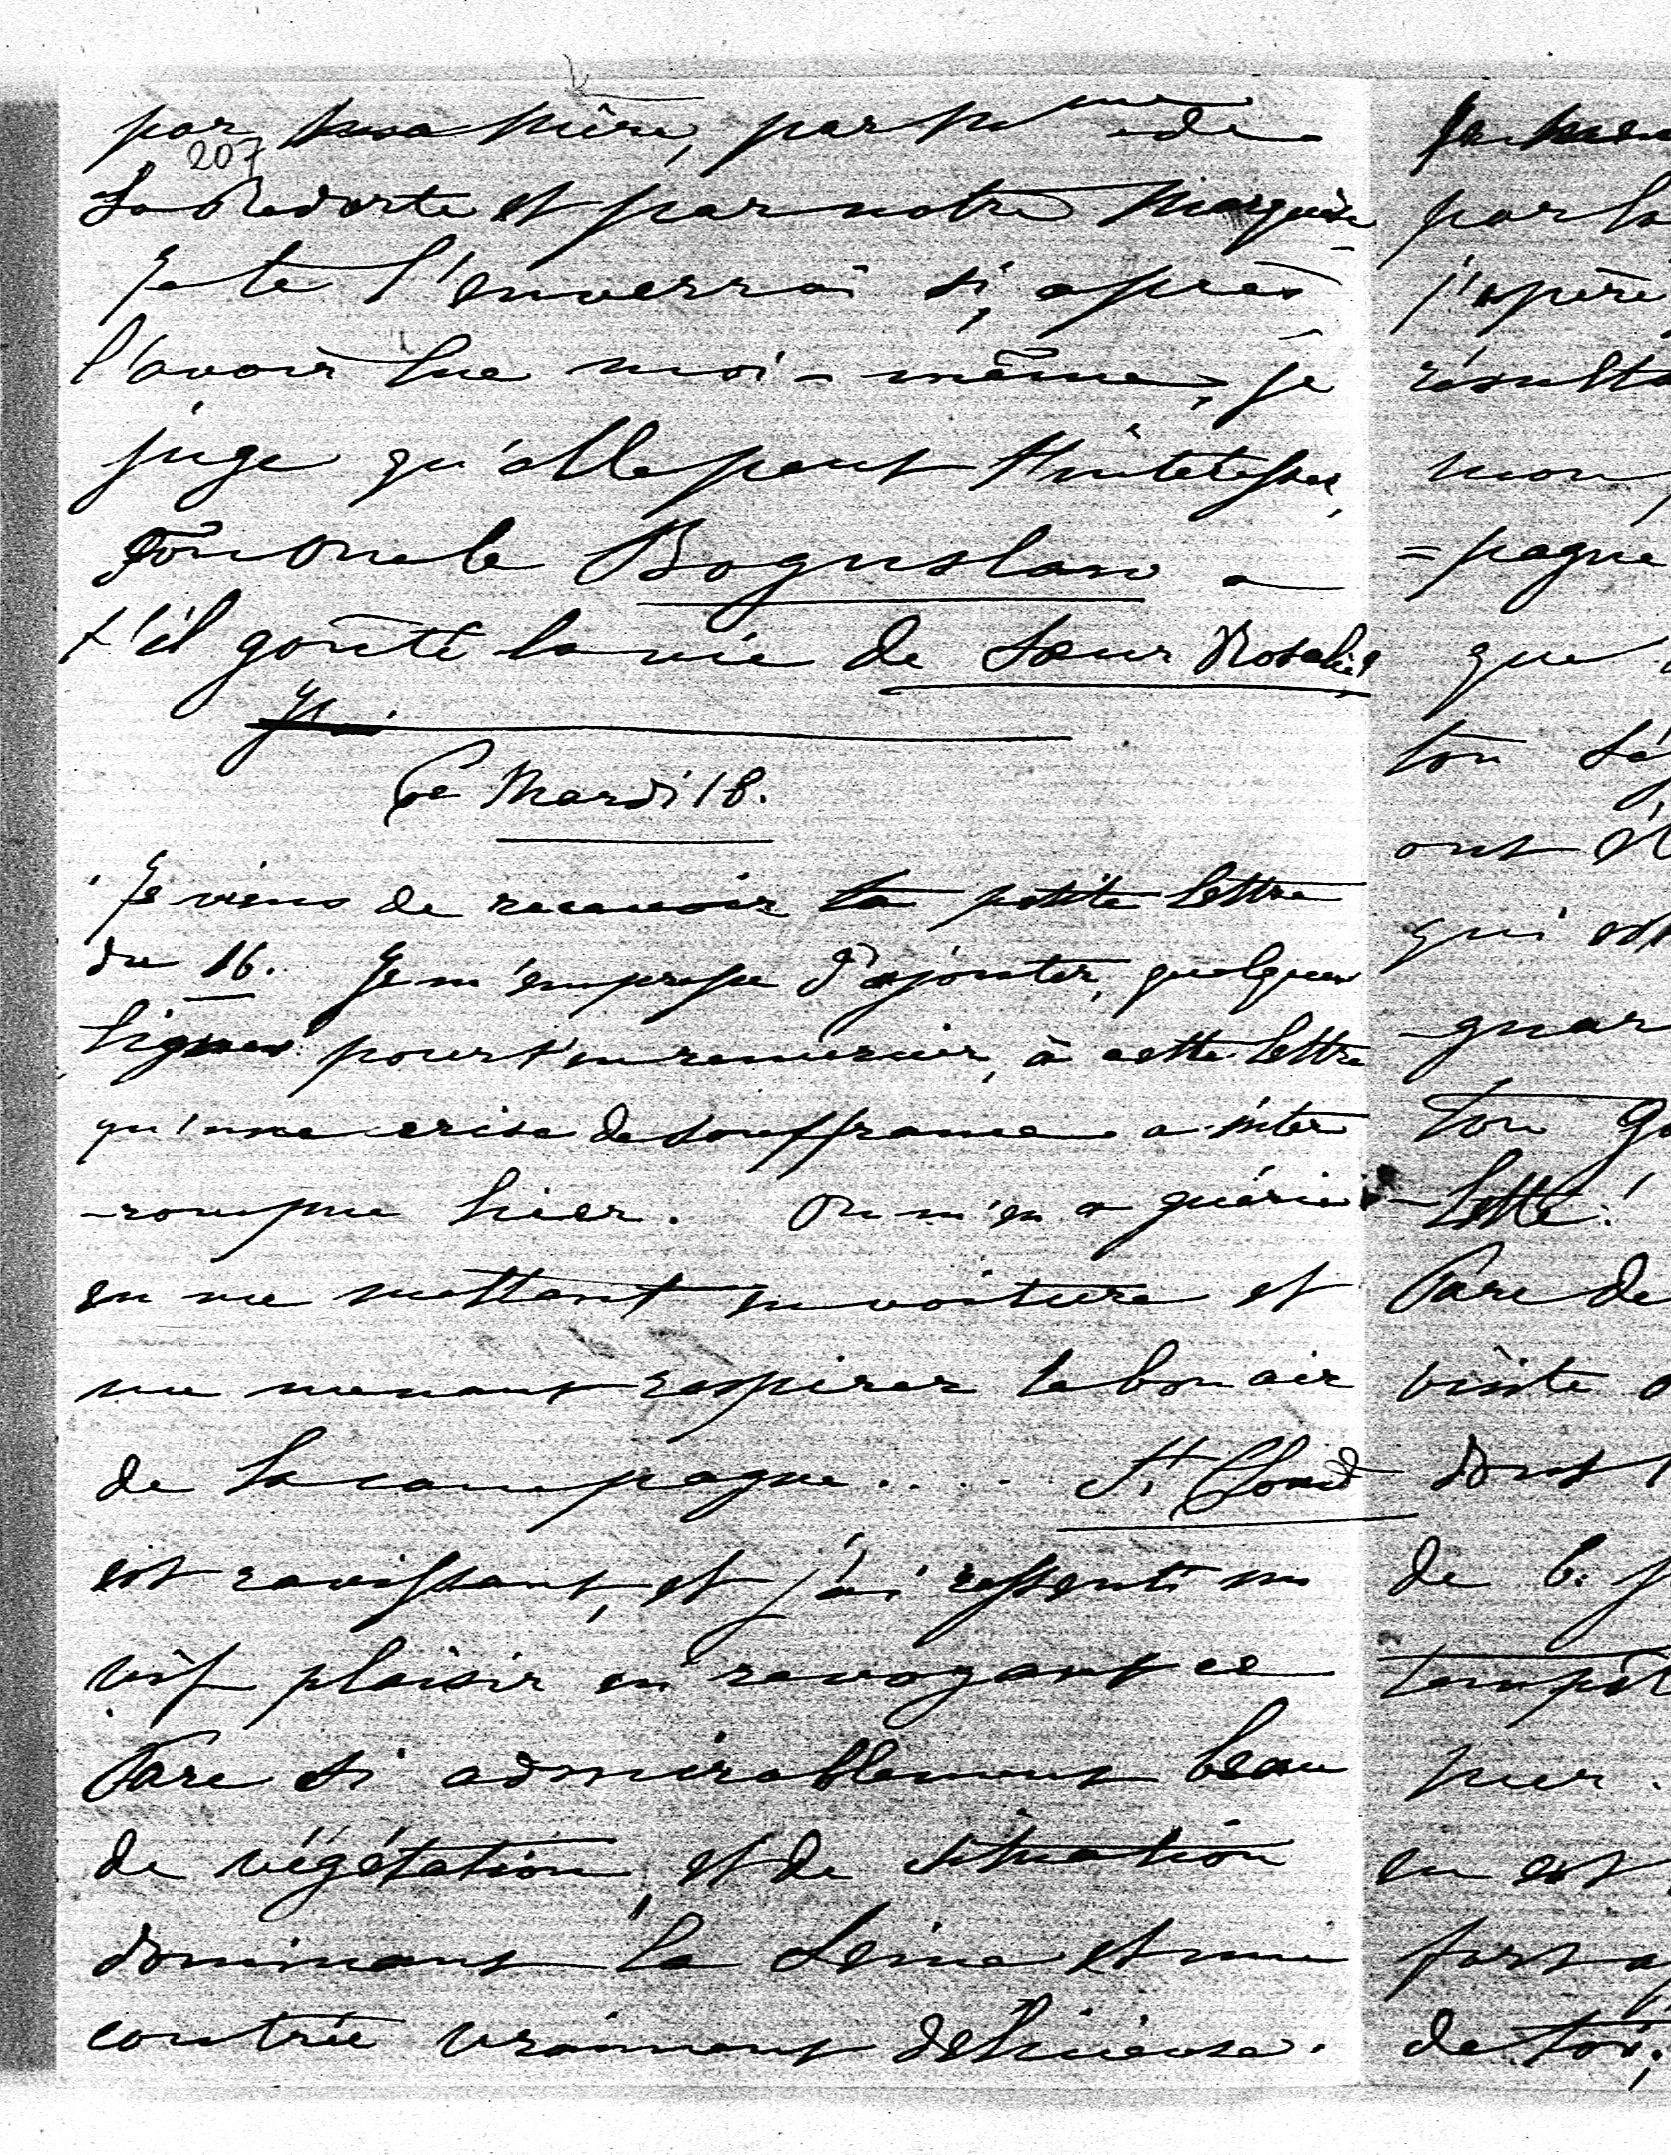 par ma Mère, par Mme de
207
La Redorte et par notre Marquise
Je te l'enverrai si, après
l'avoir lue moi-même, je
juge qu'elle peut t'intéresser,
Ton Oncle Boguslaw a
t'il goûté la vie de Sœur Rosalie?
Ce Mardi 18.
Je viens de recevoir ta petite lettre
du 16. Je m'empresse d'ajouter, quelques
lignes pour t'en remercier, à cette lettre
qu'une crise de souffrance a inter
-rompue hier. On m'en a guérie
en me mettant en voiture et
me menant respirer le bon air
de la campagne.... St Cloud
est ravissant, et j'ai ressenti un
vif plaisir en revoyant ce
Parc si admirablement beau
de végétation, et de situation
dominant la Seine et une
contrée vraiment délicieuse.
par la
j'espère
résulta
mon
=pagne
que
ton
ont
qui
-guar
ton
-lette!
Parc de
visite
dont
de
pier.
en est
fort
de toi;